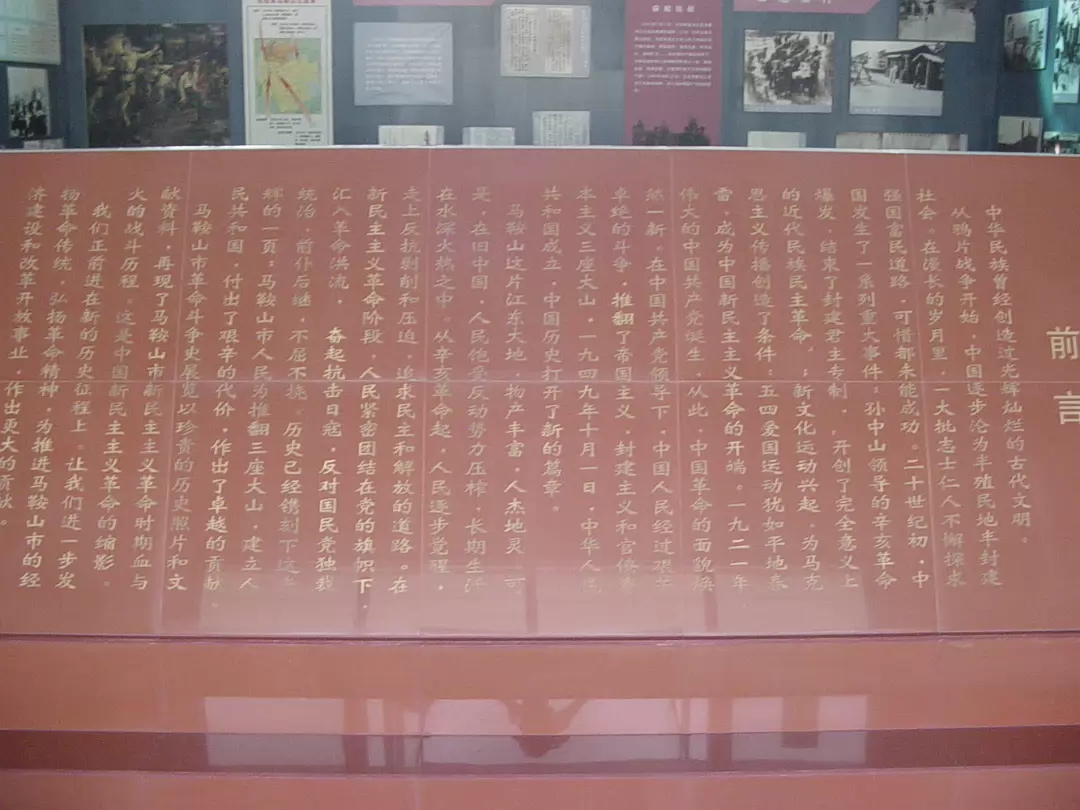 前言
中华民族曾经创造过光辉灿烂的古代文明。
从鸦片战争开始，中国逐步沦为半殖民地半封建
社会。在漫长的岁月里，一大批志士仁人不懈探求
强国富民道路，可惜都未能成功。二十世纪初，中
国发生了一系列重大事件，孙中山领导的辛亥革命
爆发，结束了封建君主专制，开创了完全意义上
的近代民族民主革命，；新文化运动兴起，为马克
思主义传播创造了条件；五四爱国运动犹如平地春
雷，成为中国新民主主义革命的开端。一九二一年
伟大的中国共产党诞生，从此，中国革命的面貌焕
然一新。在中国共产党领导下，中国人民经过艰苦
卓绝的斗争，推翻了帝国主义，封建主义和官僚资
本主义三座大山，一九四九年十月一日，中华人民
共和国成立，中国历史打开了新的篇章。
马鞍山这片江东大地，物产丰富，人杰地灵，可
是，在旧中国，人民饱受反动势力压榨，长期生活
在水深火热之中，从辛亥革命起，人民逐步觉醒，
走上反抗剥削和压迫，追求民主和解放的道路。在
新民主主义革命阶段，人民紧密团结在党的旗帜下，
汇入革命洪流，奋起抗击日寇，反对国民党独裁
统治，前仆后继，不屈不挠。历史已经镌刻下这光
辉的一页，马鞍山市人民为推翻三座大山，建立人
民共和国，付出了艰辛的代价，作出了卓越的贡献。
马鞍山市革命斗争史展览以珍贵的历史照片和文
献资料，再现了马鞍山市新民主主义革命时期血与
火的战斗历程。这是中国新民主主义革命的缩影。
我们正前进在新的历史征程上。让我们进一步发
扬革命传统，弘扬革命精神，为推进马鞍山市的经
济建设和改革开放事业，作出更大的贡献。